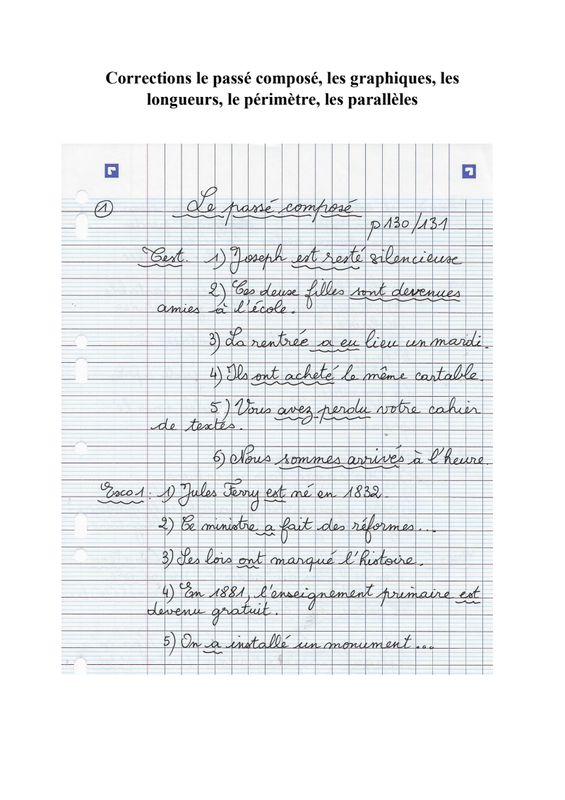 Corrections le passé composé, les graphiques, les
longueurs, le périmètre, les parallèles
1
Le passé composé
p130/131
Test. 1) Joseph est resté silencieuse
2) Ces deux filles sont devenues
amies à l'école.
3) La rentrée a eu lieu un mardi.
4) Ils ont acheté le même cartable.
5) Vous avez perdu votre cahier
de textes.
6) Nous sommes arrivés à l'heure.
Exo1: 1) Jules Ferry est né en 1832.
2) Ce ministre a fait des réformes...
3) Ses lois ont marqué l'histoire.
4) En 1881, l'enseignement primaire est
devenu gratuit.
5) On a installé un monument...